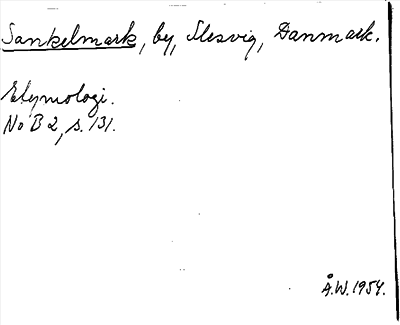 Sankelmark, by, Slesvig, Danmark.
Etymologi.
No B 2, s. 131.
Å.W. 1954.